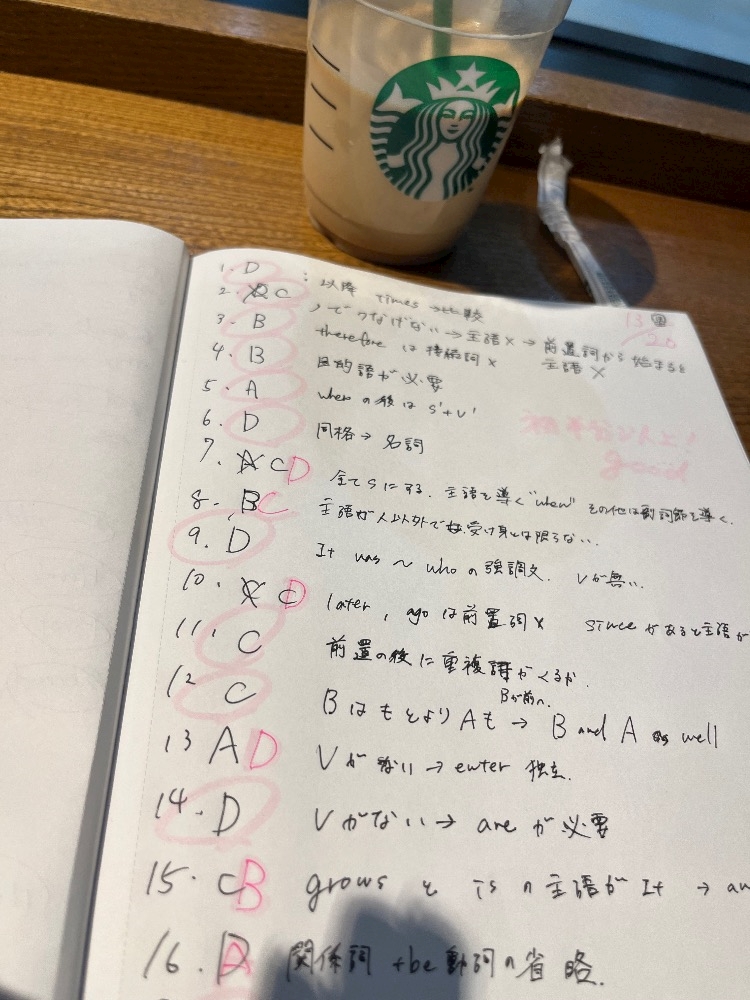 1. D : 以降 times →比較
2. C ノでつなげない→主語× → 前置詞から始まると主語×
3. B therefore は接続詞×
4. B 目的語が必要
5. A when の後は S'+V'
6. D 同格→名詞
7. A C D 全てSにする. 主語を導く "when" その他は副詞節を導く.
8. B C 主語が人以外でも受け身とは限らない.
9. D It was ~ who の強調文. Vが無い.
10. C D later, ago は前置詞× since があると主語が
11. C 前置の後に重複詞がくるか.
12 C BはもとよりAも → B and A as well
Bが前へ.
13 A D Vがない→ enter 独立.
14. D Vがない→ are が必要
15. C B grows と is の主語が It →
16. D A 関係詞 +be動詞の省略.
13
/20
good